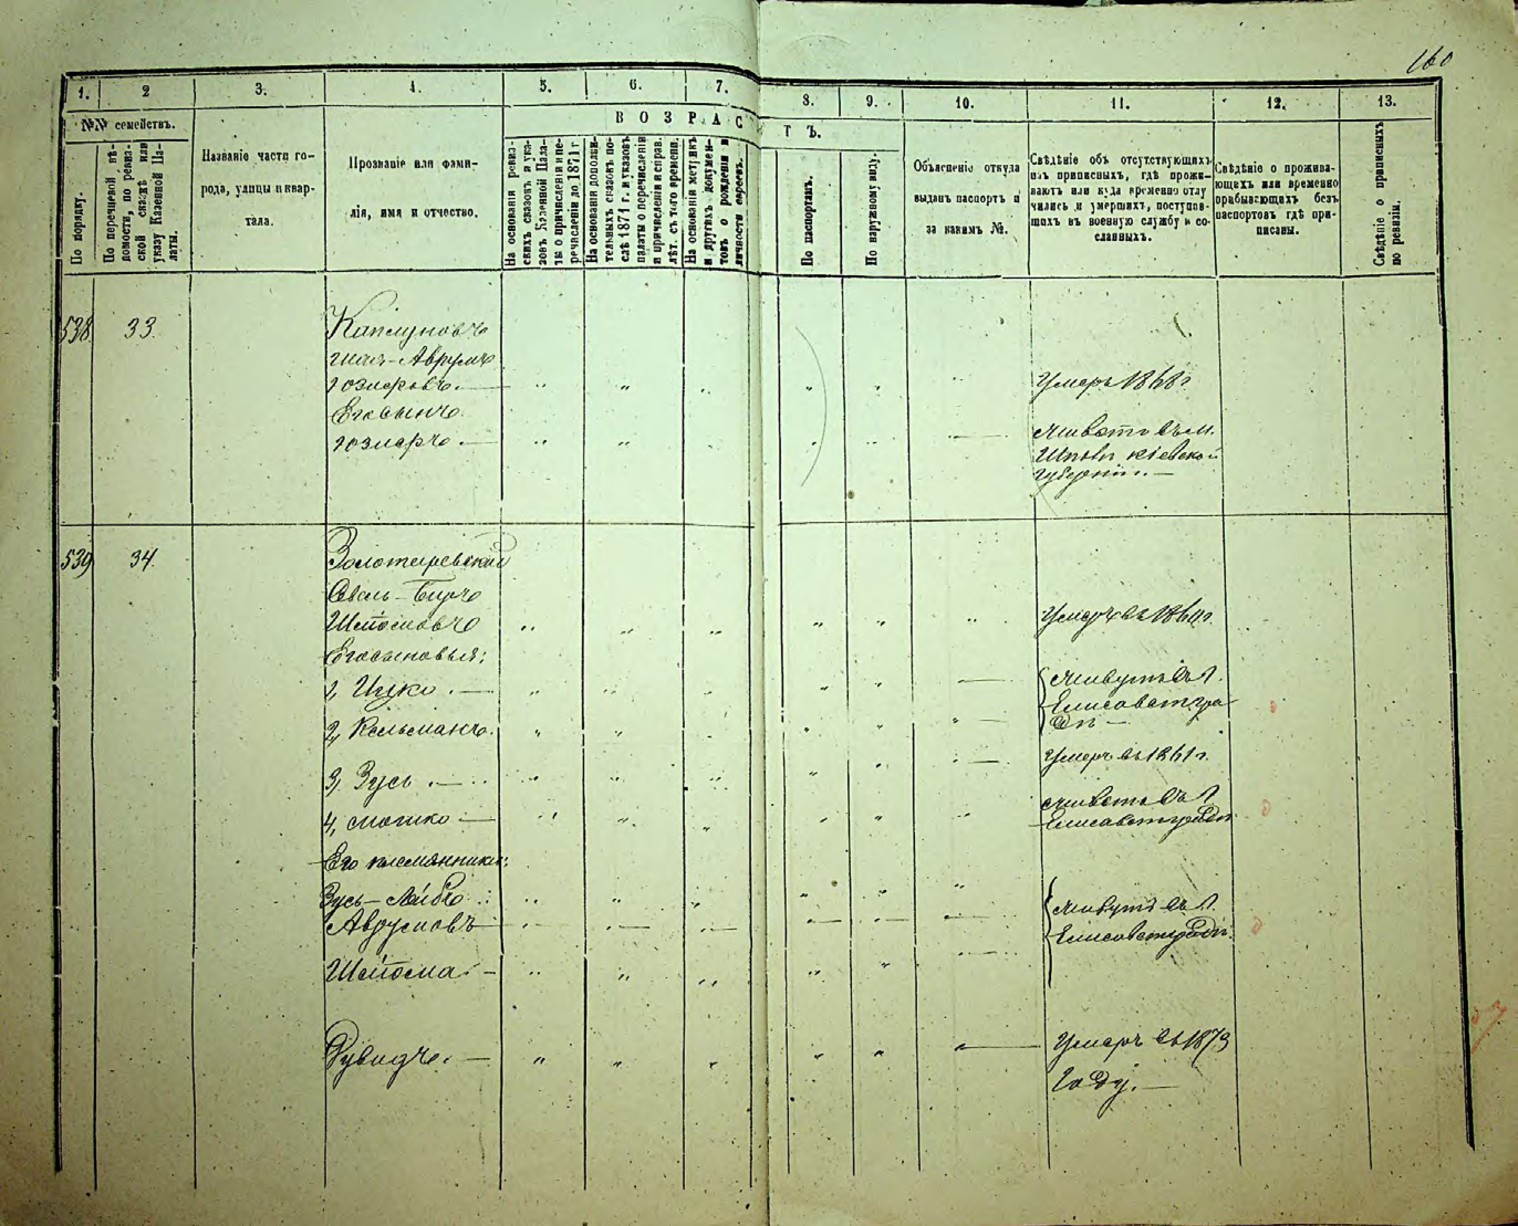 160
1. 2 3. 4. 5. 6. 7. 8. 9. 10. 11. 12. 13.
№№ семействъ.
В О З Р А С Т Ъ.
По порядку.
По перечневой вѣ-
домости, по ревиз-
ской сказкѣ или
указу Казенной Па-
латы.
Названіе части го-
рода, улицы и квар-
тала.
Прозваніе или фами-
лія, имя и отчество.
На основаніи ревиз-
скихъ сказокъ и ука-
зовъ Казенной Пала-
ты о причисленіи и пе-
речисленіи до 1871 г
На основаніи дополни-
тельныхъ сказокъ по-
слѣ 1871 г. и указовъ
палаты о перечисленіи
и причисленіи и справ.
лѣт. съ того времени.
На основаніи метрикъ
и другихъ докумен-
товъ о рожденіи и
личности евреевъ.
По паспортамъ.
По наружному виду.
Объясненіе откуда
выданъ паспортъ и
за какимъ №.
Свѣдѣніе объ отсутствующихъ
изъ приписныхъ, гдѣ прожи-
ваютъ или куда временно отлу
чились и умершихъ, поступив-
шихъ въ военную службу и со-
сланныхъ.
Свѣдѣніе о прожива-
ющихъ или временно
прибывающихъ безъ
паспортовъ гдѣ при-
писаны.
Свѣдѣніе о приписныхъ
по ревизіи.
538 33.
Каплуновъ
Аврумъ
Умеръ 1868 г
Его сынъ
Живетъ въ м.
Кіевской
губерніи. —
539 34.
Золотаревскій
Беръ
Шлёмовъ Умеръ въ
Его сыновья:
1, Ицко. — Живутъ въ г.
Елисаветгра
2, Кельманъ. дѣ —
3, Зусь . — Умеръ въ 1861 г.
4, Мошко — Живетъ въ г
Елисаветградѣ
Его племянники:
Зусь – Лейбъ Живутъ въ г.
Аврумовъ Елисаветградѣ.
Шлёма. –
Рувинъ. — Умеръ въ 1873
году. —